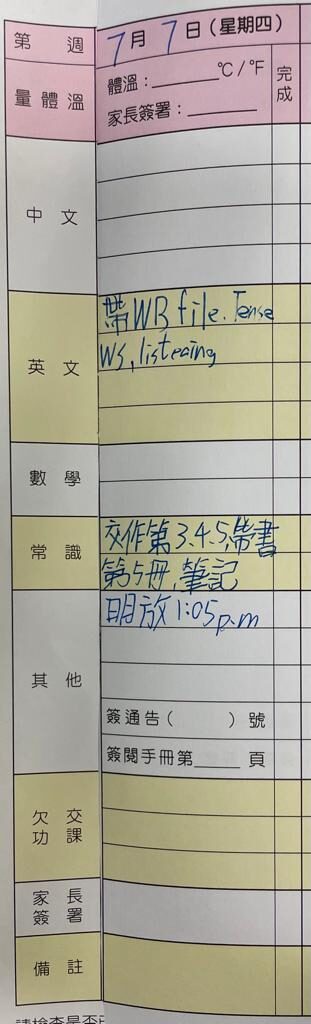 第 週
7月 7日(星期四)
量體溫
體溫：______ ℃/℉
家長簽署：______
完成
中文
英文
帶WB file. Tense
WS, listening
數學
常識
交作第3.4.5,帶書
第5冊,筆記
其他
明放1:05p.m
簽通告(　　)號
簽閱手冊第____頁
欠交功課
家長簽署
備註